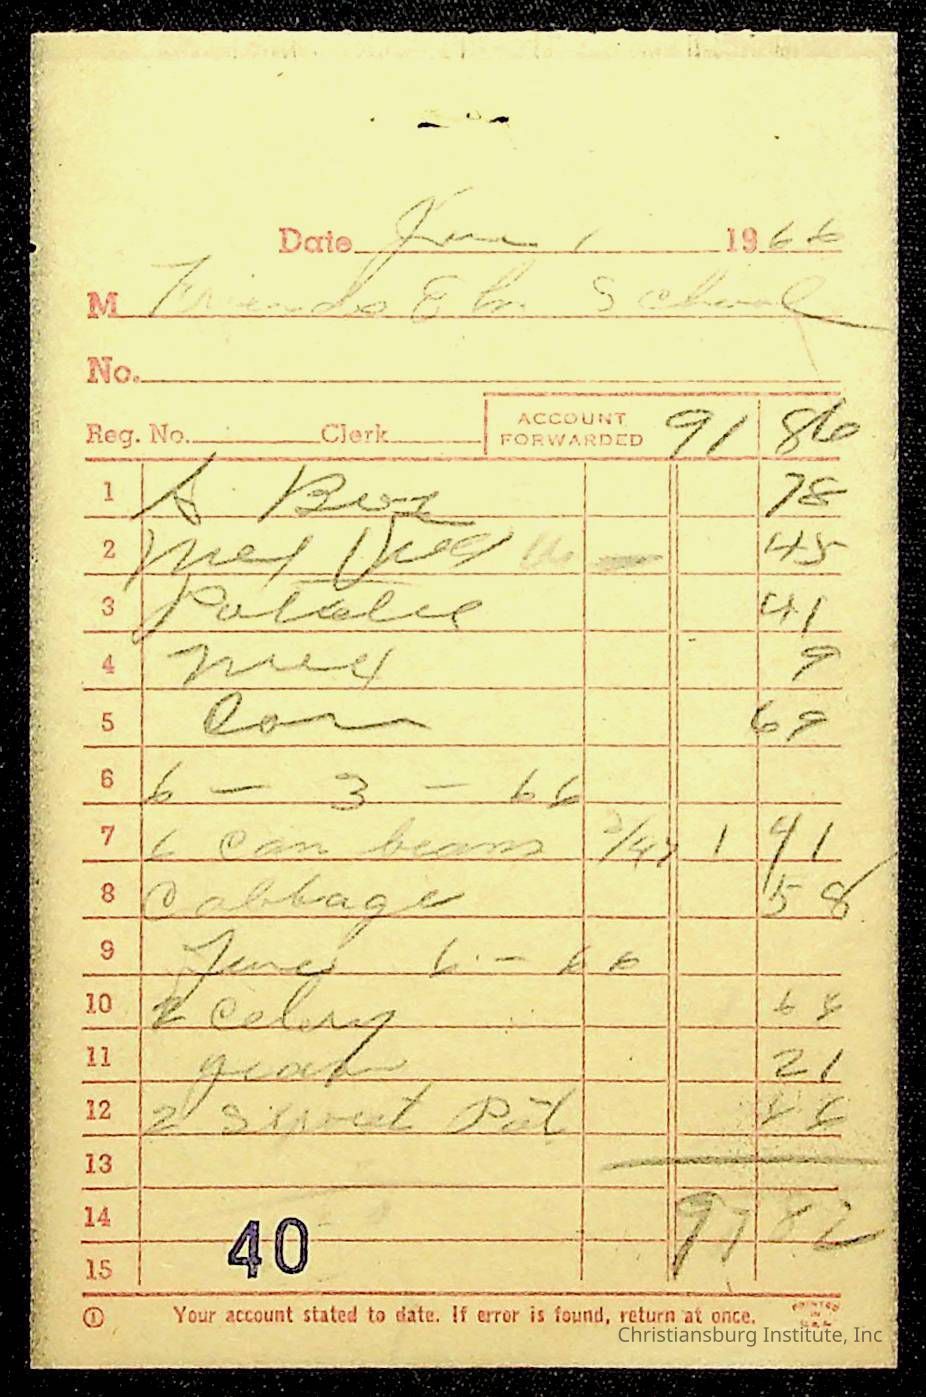 Date June 1 1966
M Friends Elm School
No.
Reg. No. Clerk ACCOUNT FORWARDED 91 86
1 78
2 45
3 Potatoe 41
4 9
5 Corn 69
6 6 - 3 - 66
7 6 Can beans 2/47 1 41
8 Cabbage 58
9 June 6 - 66
10 2 Celery
11 21
12 2 Sweet Pot
13
14 97 82
15 40
Your account stated to date. If error is found, return at once. PRINTED IN U.S.A.
Christiansburg Institute, Inc